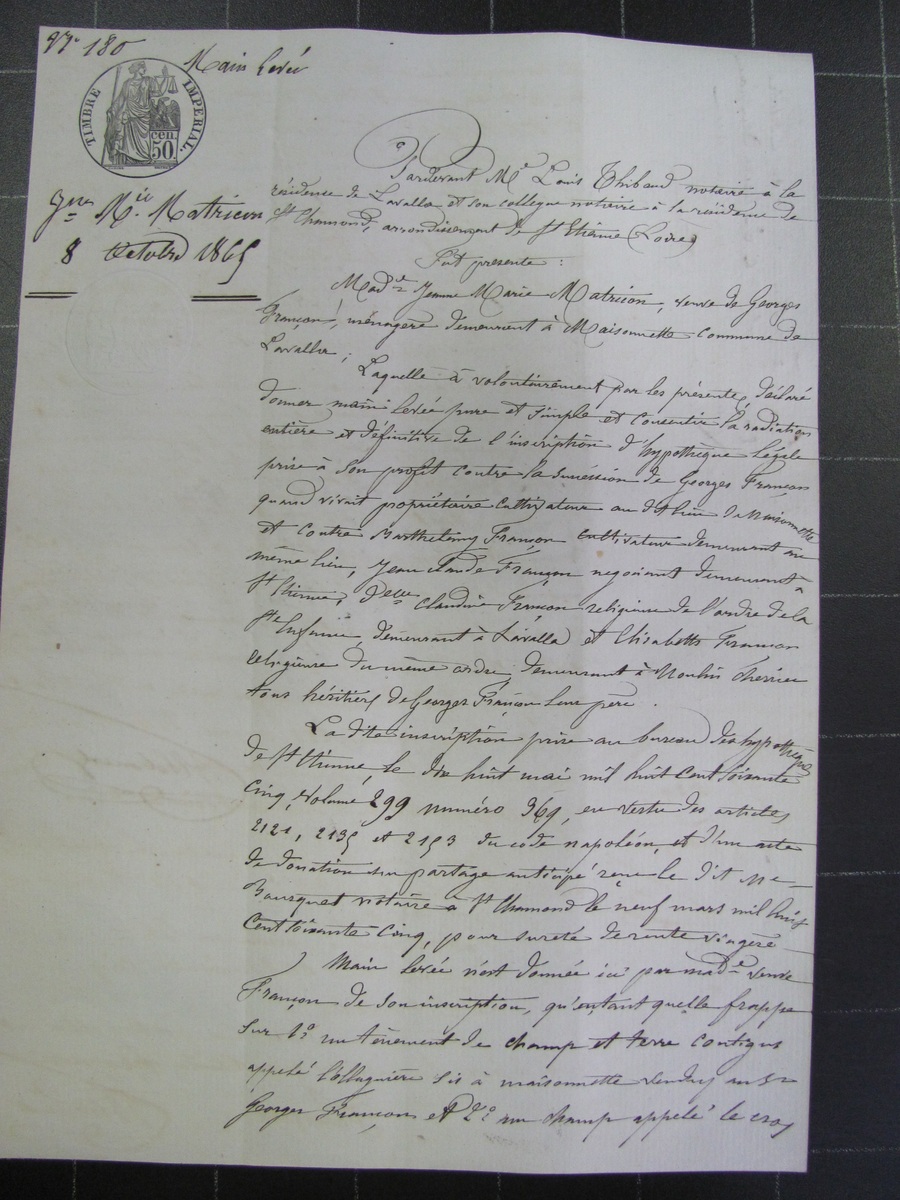 N° 180
Main Levée
TIMBRE IMPERIAL.
cen.
50
Jne Mie Matricon
8 Octobre 1865
Pardevant Me Louis Thibaud notaire à la
résidence de Lavalla et son collègue notaire à la résidence de
St Chamond, arrondissement de St Etienne (Loire)
Fut présente :
Made Jeanne Marie Matricon, veuve de Georges
Françon, ménagère demeurant à Maisonnette commune de
Lavalla ;
Laquelle à volontairement par les présentes déclaré
donner main levée pure et simple et consentir la radiation
entière et définitive de l'inscription d'hypothèque légale
prise à son profit contre la succession de Georges Françon
quand vivait propriétaire cultivateur au dit lieu de Maisonnette
et contre Barthélemy Françon cultivateur demeurant au
même lieu, Jean Claude Françon négociant demeurant à
St Etienne, Delle Claudine Françon religieuse de l'ordre de la
Ste Enfance, demeurant à Lavalla et Elisabeth Françon
religieuse du même ordre, demeurant à Moulin Cherrier
tous héritiers de Georges Françon leur père.
La dite inscription prise au bureau des hypothèques
de St Etienne, le dix huit mai mil huit cent soixante
cinq, volume 299 numéro 369, en vertu des articles
2121, 2135 et 2153 du code napoléon, et d'un acte
de donation sur partage anticipé reçu le dit Me
Bousquet notaire à St Chamond le neuf mars mil huit
cent soixante cinq, pour sureté de rente viagère
Main levée n'est donnée ici par made veuve
Françon de son inscription, qu'entant quelle frappe
sur 1° un tènement de champ et terre contigus
appelé sis à maisonnette vendus au Sr
Georges Françon et 2° un champ appelé le cros